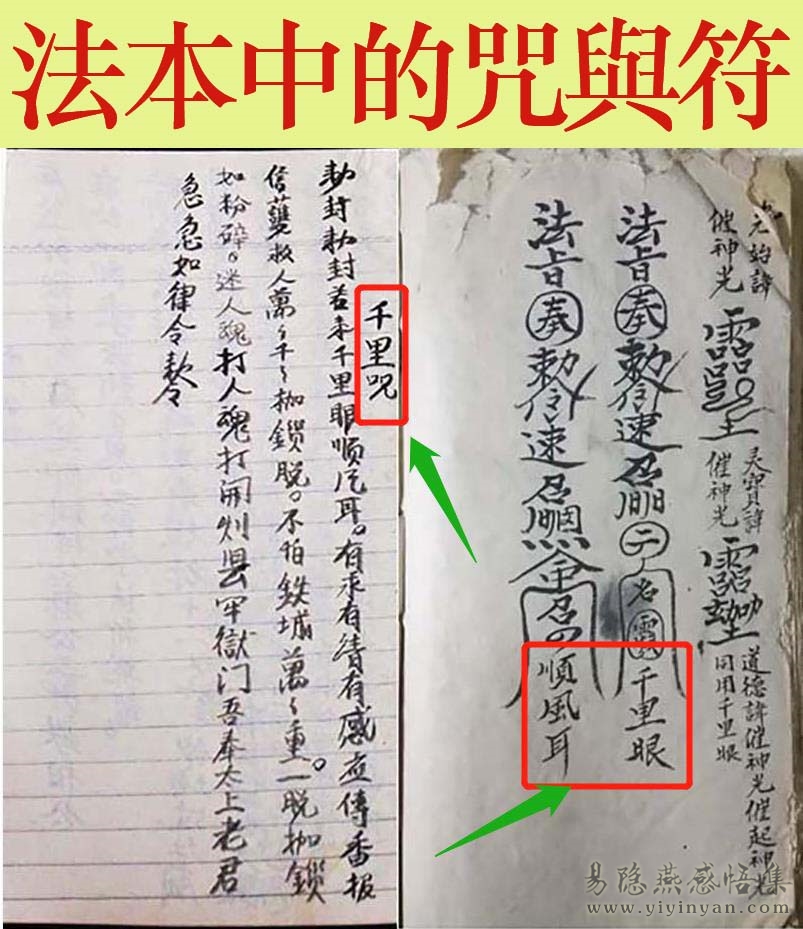 法本中的咒與符
千里咒
勅封勅封若来千里眼順风耳。有求有請有感应傳香报
信救人萬々千々枷鎖脱。不怕鉄城萬々重。一脱枷鎖
如粉碎。迷人魂打人魂打開州县牢獄门吾奉太上老君
急急如律令敕令
元始諱
催神光
灵寶諱
催神光
道德諱催神光催起神光
同用千里眼
法旨奉勅令速召
千里眼
法旨奉勅令速召
順風耳
易隐燕感悟集
www.yiyinyan.com